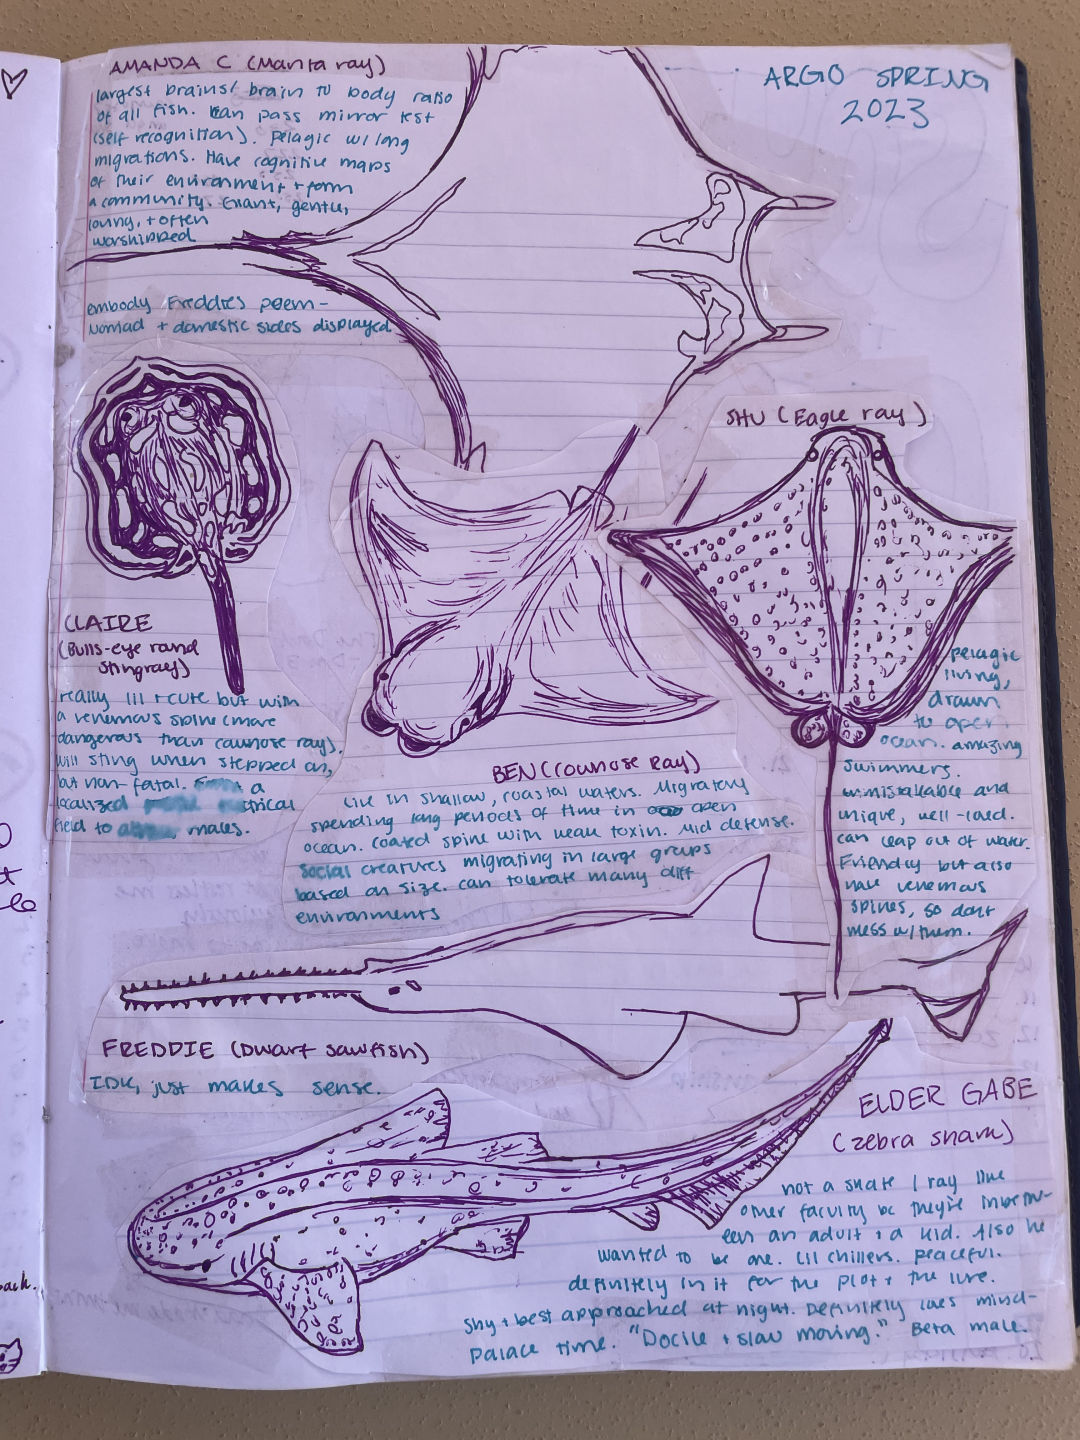 ARGO SPRING
2023
AMANDA C (Manta ray)
largest brains/ brain to body ratio
of all fish. can pass mirror test
(self recognition). Pelagic w/ long
migrations. Have cognitive maps
of their environment + form
a community. Giant, gentle,
loving, + often
worshipped
embody Freddies poem-
Nomad + domestic sides displayed
CLAIRE
(Bulls-eye round
stingray)
really lil + cute but with
a venemous spine (more
dangerous than cownose ray).
Will sting when stepped on,
but non-fatal. a
localized
field to males.
SHU (Eagle ray)
pelagic
living,
drawn
to open
ocean. amazing
swimmers.
unmistakable and
unique, well-loved.
can leap out of water.
Friendly but also
have venemous
spines, so dont
mess w/ them.
BEN (Cownose Ray)
Live in shallow, coastal waters. Migratory
spending long periods of time in open
ocean. coated spine with weak toxin. Mid defense.
Social creatures migrating in large groups
based on size. can tolerate many diff
environments
FREDDIE (Dwarf sawfish)
IDK, just makes sense.
ELDER GABE
(zebra shark)
not a skate / ray like
other faculty bc they're inbetw-
een an adult + a kid. Also he
wanted to be one. Lil chillers. peaceful.
definitely in it for the plot + the lore.
Shy + best approached at night. Definitely loves mind-
palace time. "Docile + slow moving." Beta male.